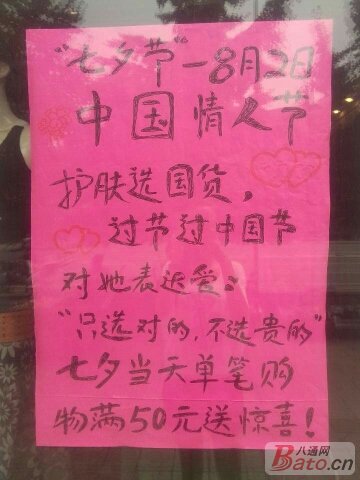 "七夕节"-8月2日
中国情人节
护肤选国货，
过节过中国节
对她表达爱：
"只选对的，不选贵的"
七夕当天单笔购
物满50元送惊喜！
八通网
Bato.cn